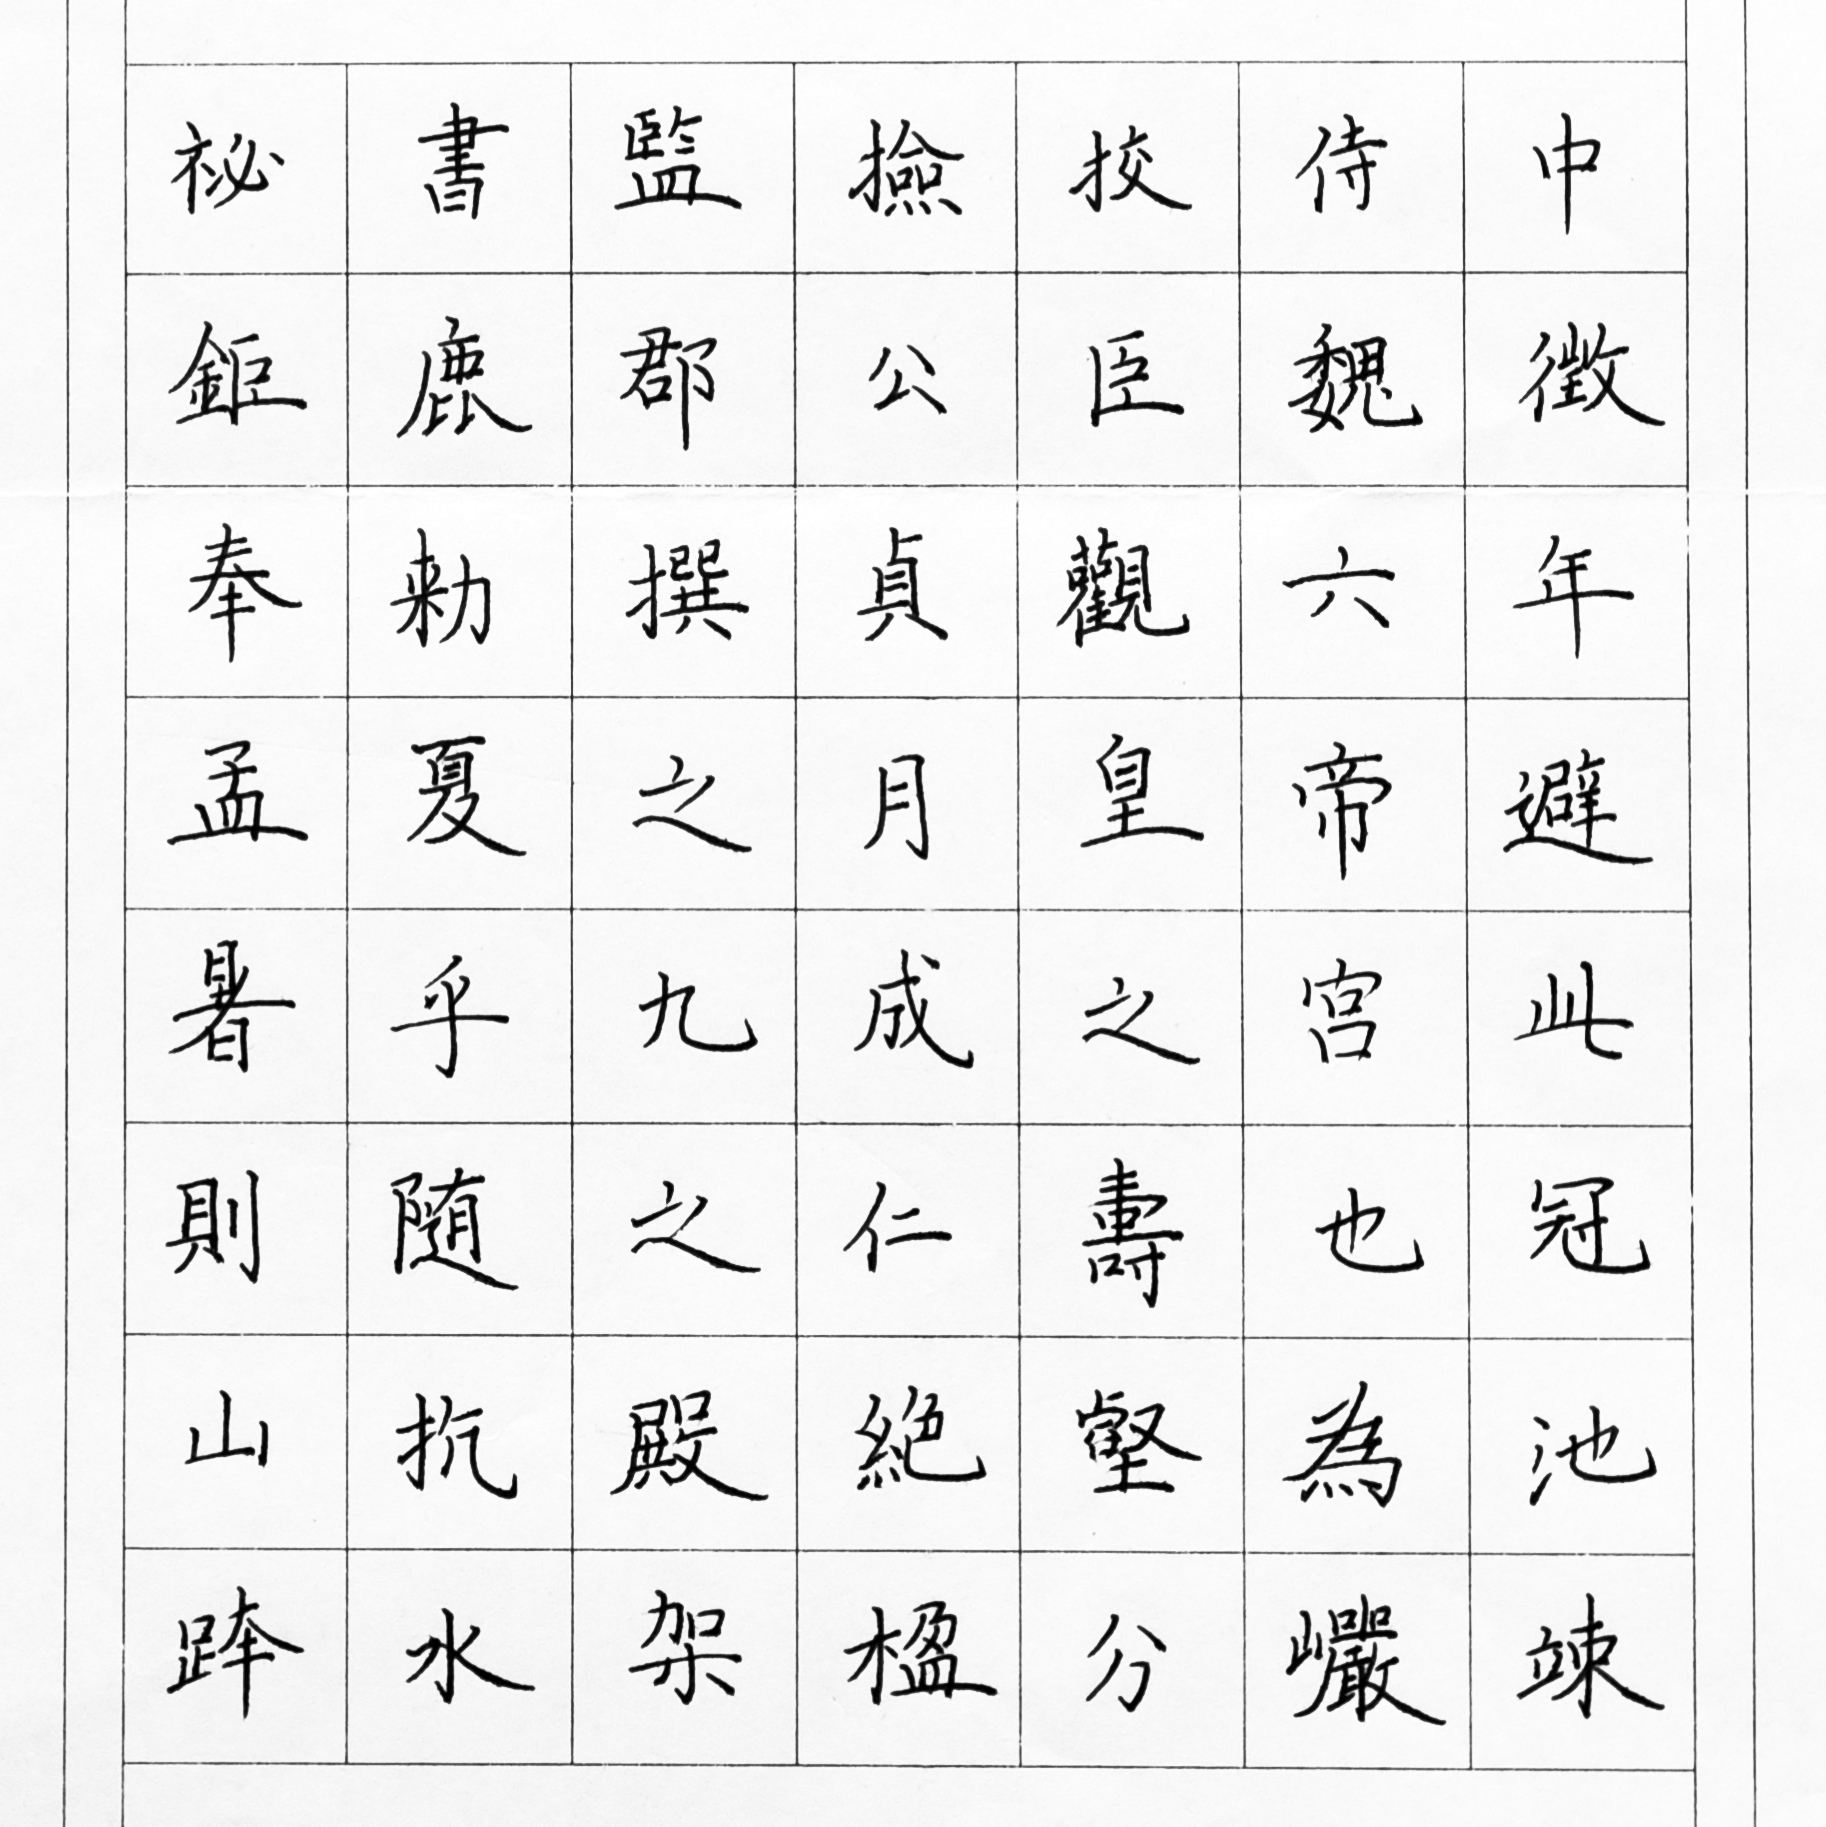 祕書監撿挍侍中
鉅鹿郡公臣魏徵
奉勑撰貞觀六年
孟夏之月皇帝避
暑乎九成之宫此
則随之仁壽也冠
山抗殿絶壑為池
跨水架楹分巗竦